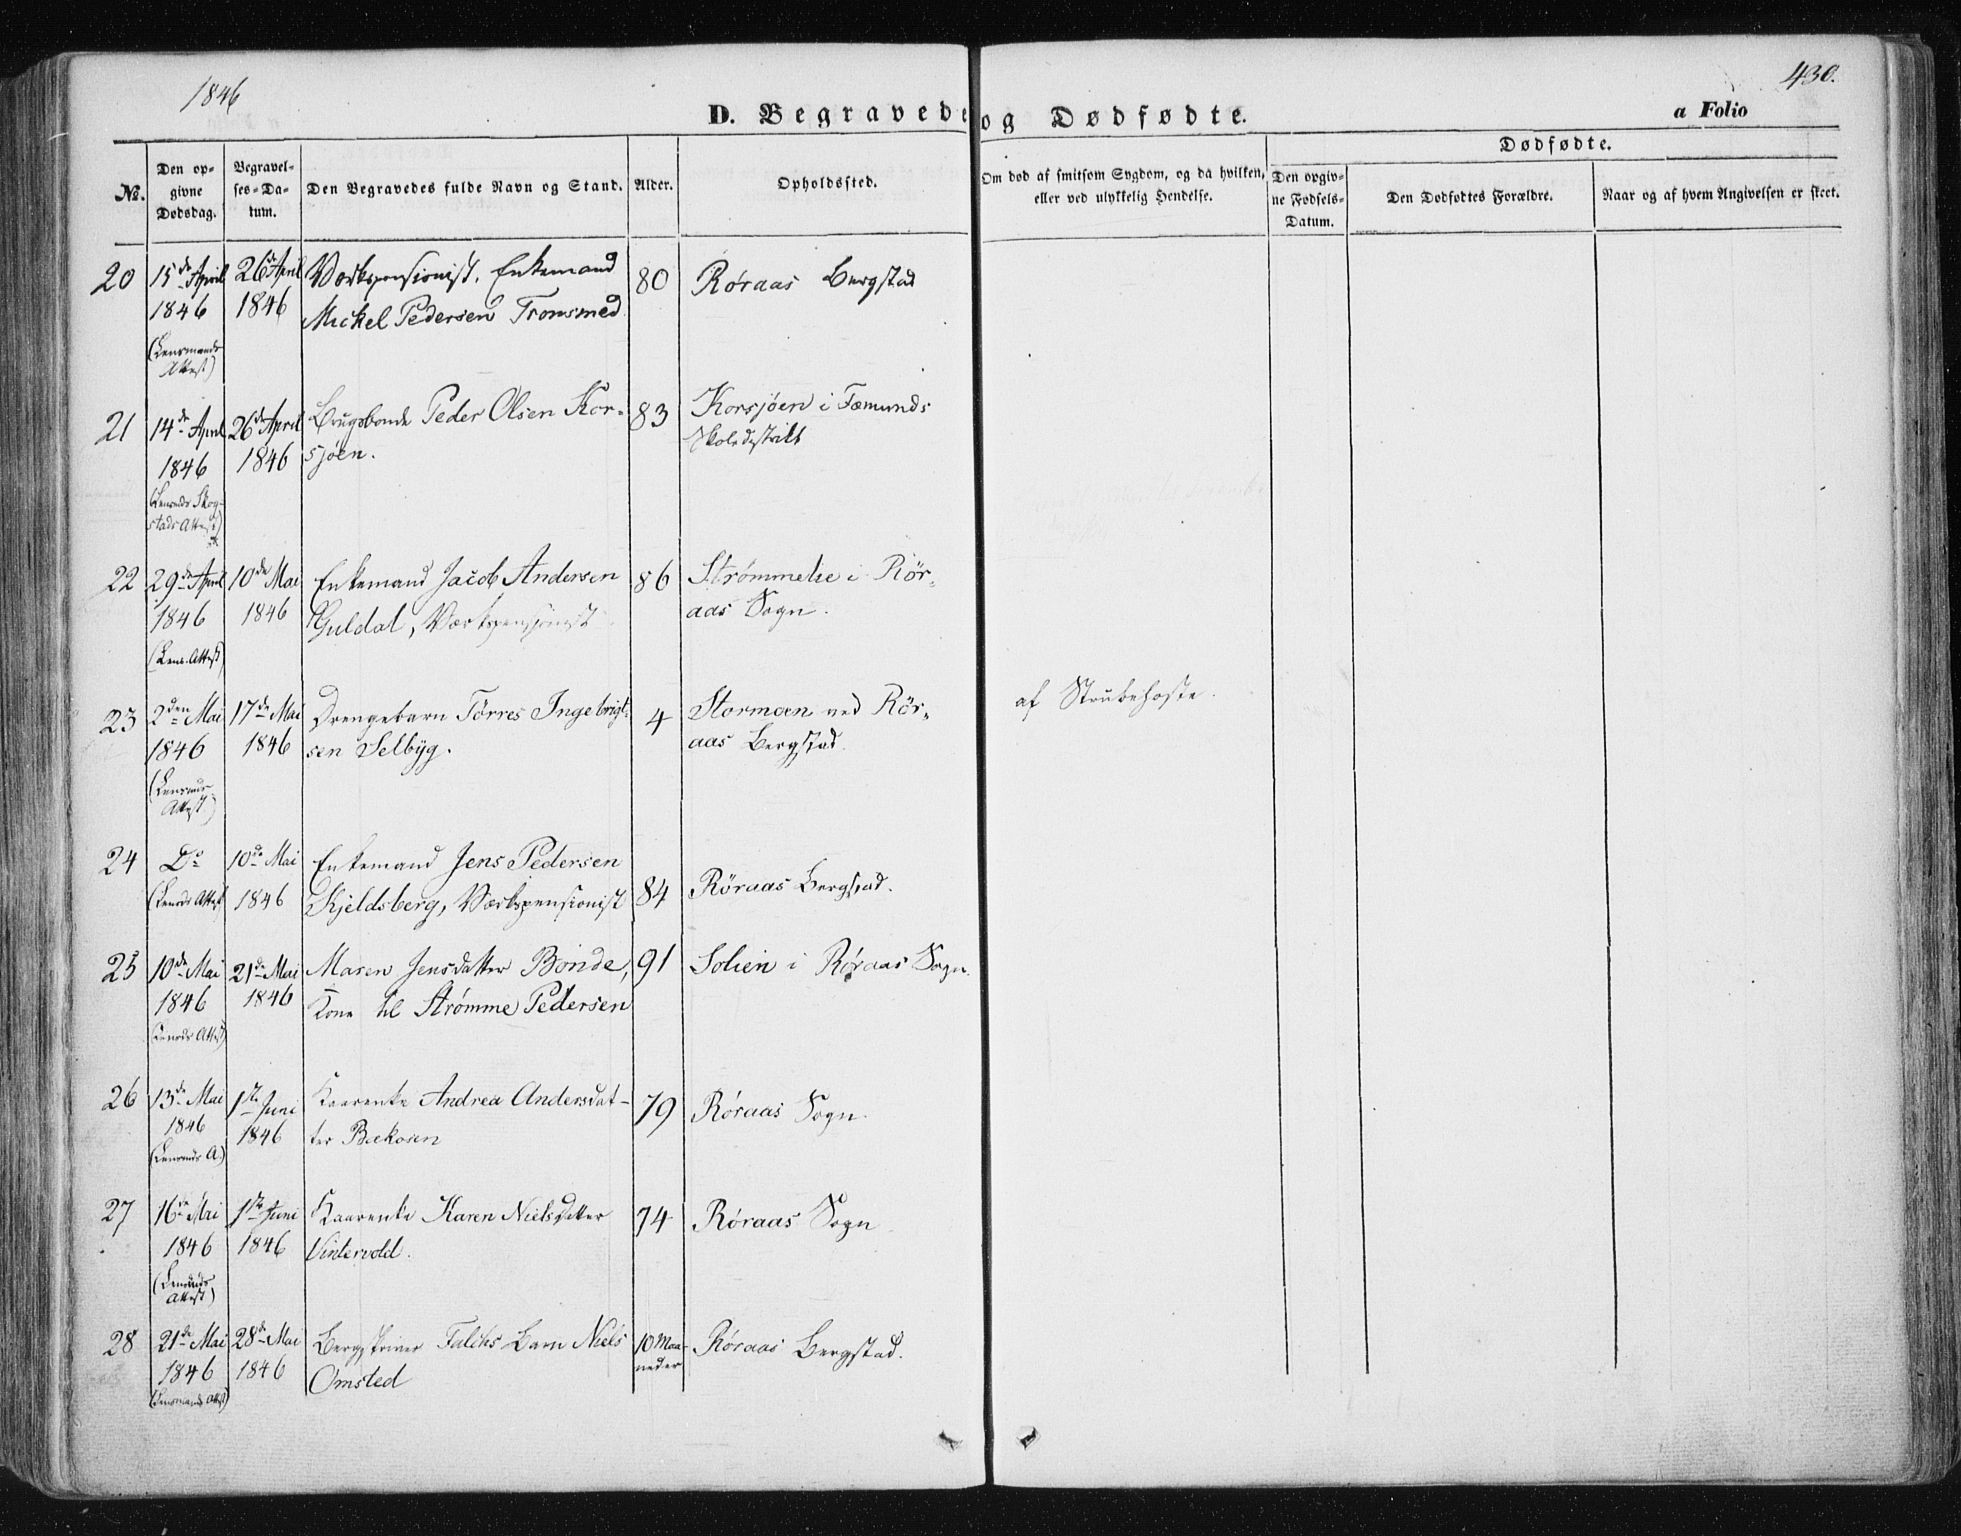 1846
430.
D. Begravede og Dødfødte.
a Folio
No.
Den opgivne Dødsdag.
Begravelses-Datum.
Den Begravedes fulde Navn og Stand.
Alder.
Opholdssted.
Om død af smitsom Sygdom, og da hvilken, eller ved ulykkelig Hendelse.
Dødfødte.
Den opgivne Fødsels-Datum.
Den Dødfødtes Forældre.
Naar og af hvem Angivelsen er skeet.
20 15de April 26de April Værkspensionist, Enkemand 80 Røraas Bergstad
1846 1846 Mickel Pedersen Tronsmed
(Lensmands
Attest)
21 14de April 26de April Brugsbonde Peder Olsen Kor- 83 Korsjøen i Fæmunds
1846 1846 sjøen. Skoledistrikt
(Lensmds Skog-
stads Attest)
22 29de April 10de Mai Enkemand Jacob Andersen 86 Strømmelie i Rør-
1846 1846 Guldal, Værkspensionist aas Sogn.
(Lens. Attest)
23 2den Mai 17de Mai Drengebarn Tørres Ingebrigt- 4 Stormoen ved Rør- af Strubehoste.
1846 1846 sen Selbyg. aas Bergstad.
(Lensmds
Attest)
24 Do 10de Mai Enkemand Jens Pedersen
(Lensds Attest) 1846 Kjeldsberg, Værkspensionist 84 Røraas Bergstad.
25 10de Mai 21de Mai Maren Jensdatter Bonde, 91 Solien i Røraas Sogn.
1846 1846 Kone til Strømme Pedersen
(Lensds Attest)
26 13de Mai 1ste Juni Kaarenke Andrea Andersdat- 79 Røraas Sogn.
1846 1846 ter Bækosen
(Lensmds A.)
27 16de Mai 1ste Juni Kaarenke Karen Nielsdatter 74 Røraas Sogn
1846 1846 Vintervold.
(Lensmds
Attest)
28 21de Mai 28de Mai Bergskriver Falchs Barn Niels 10 Maa- Røraas Bergstad.
1846 1846 Omsted neder
(Lensmands Attst)